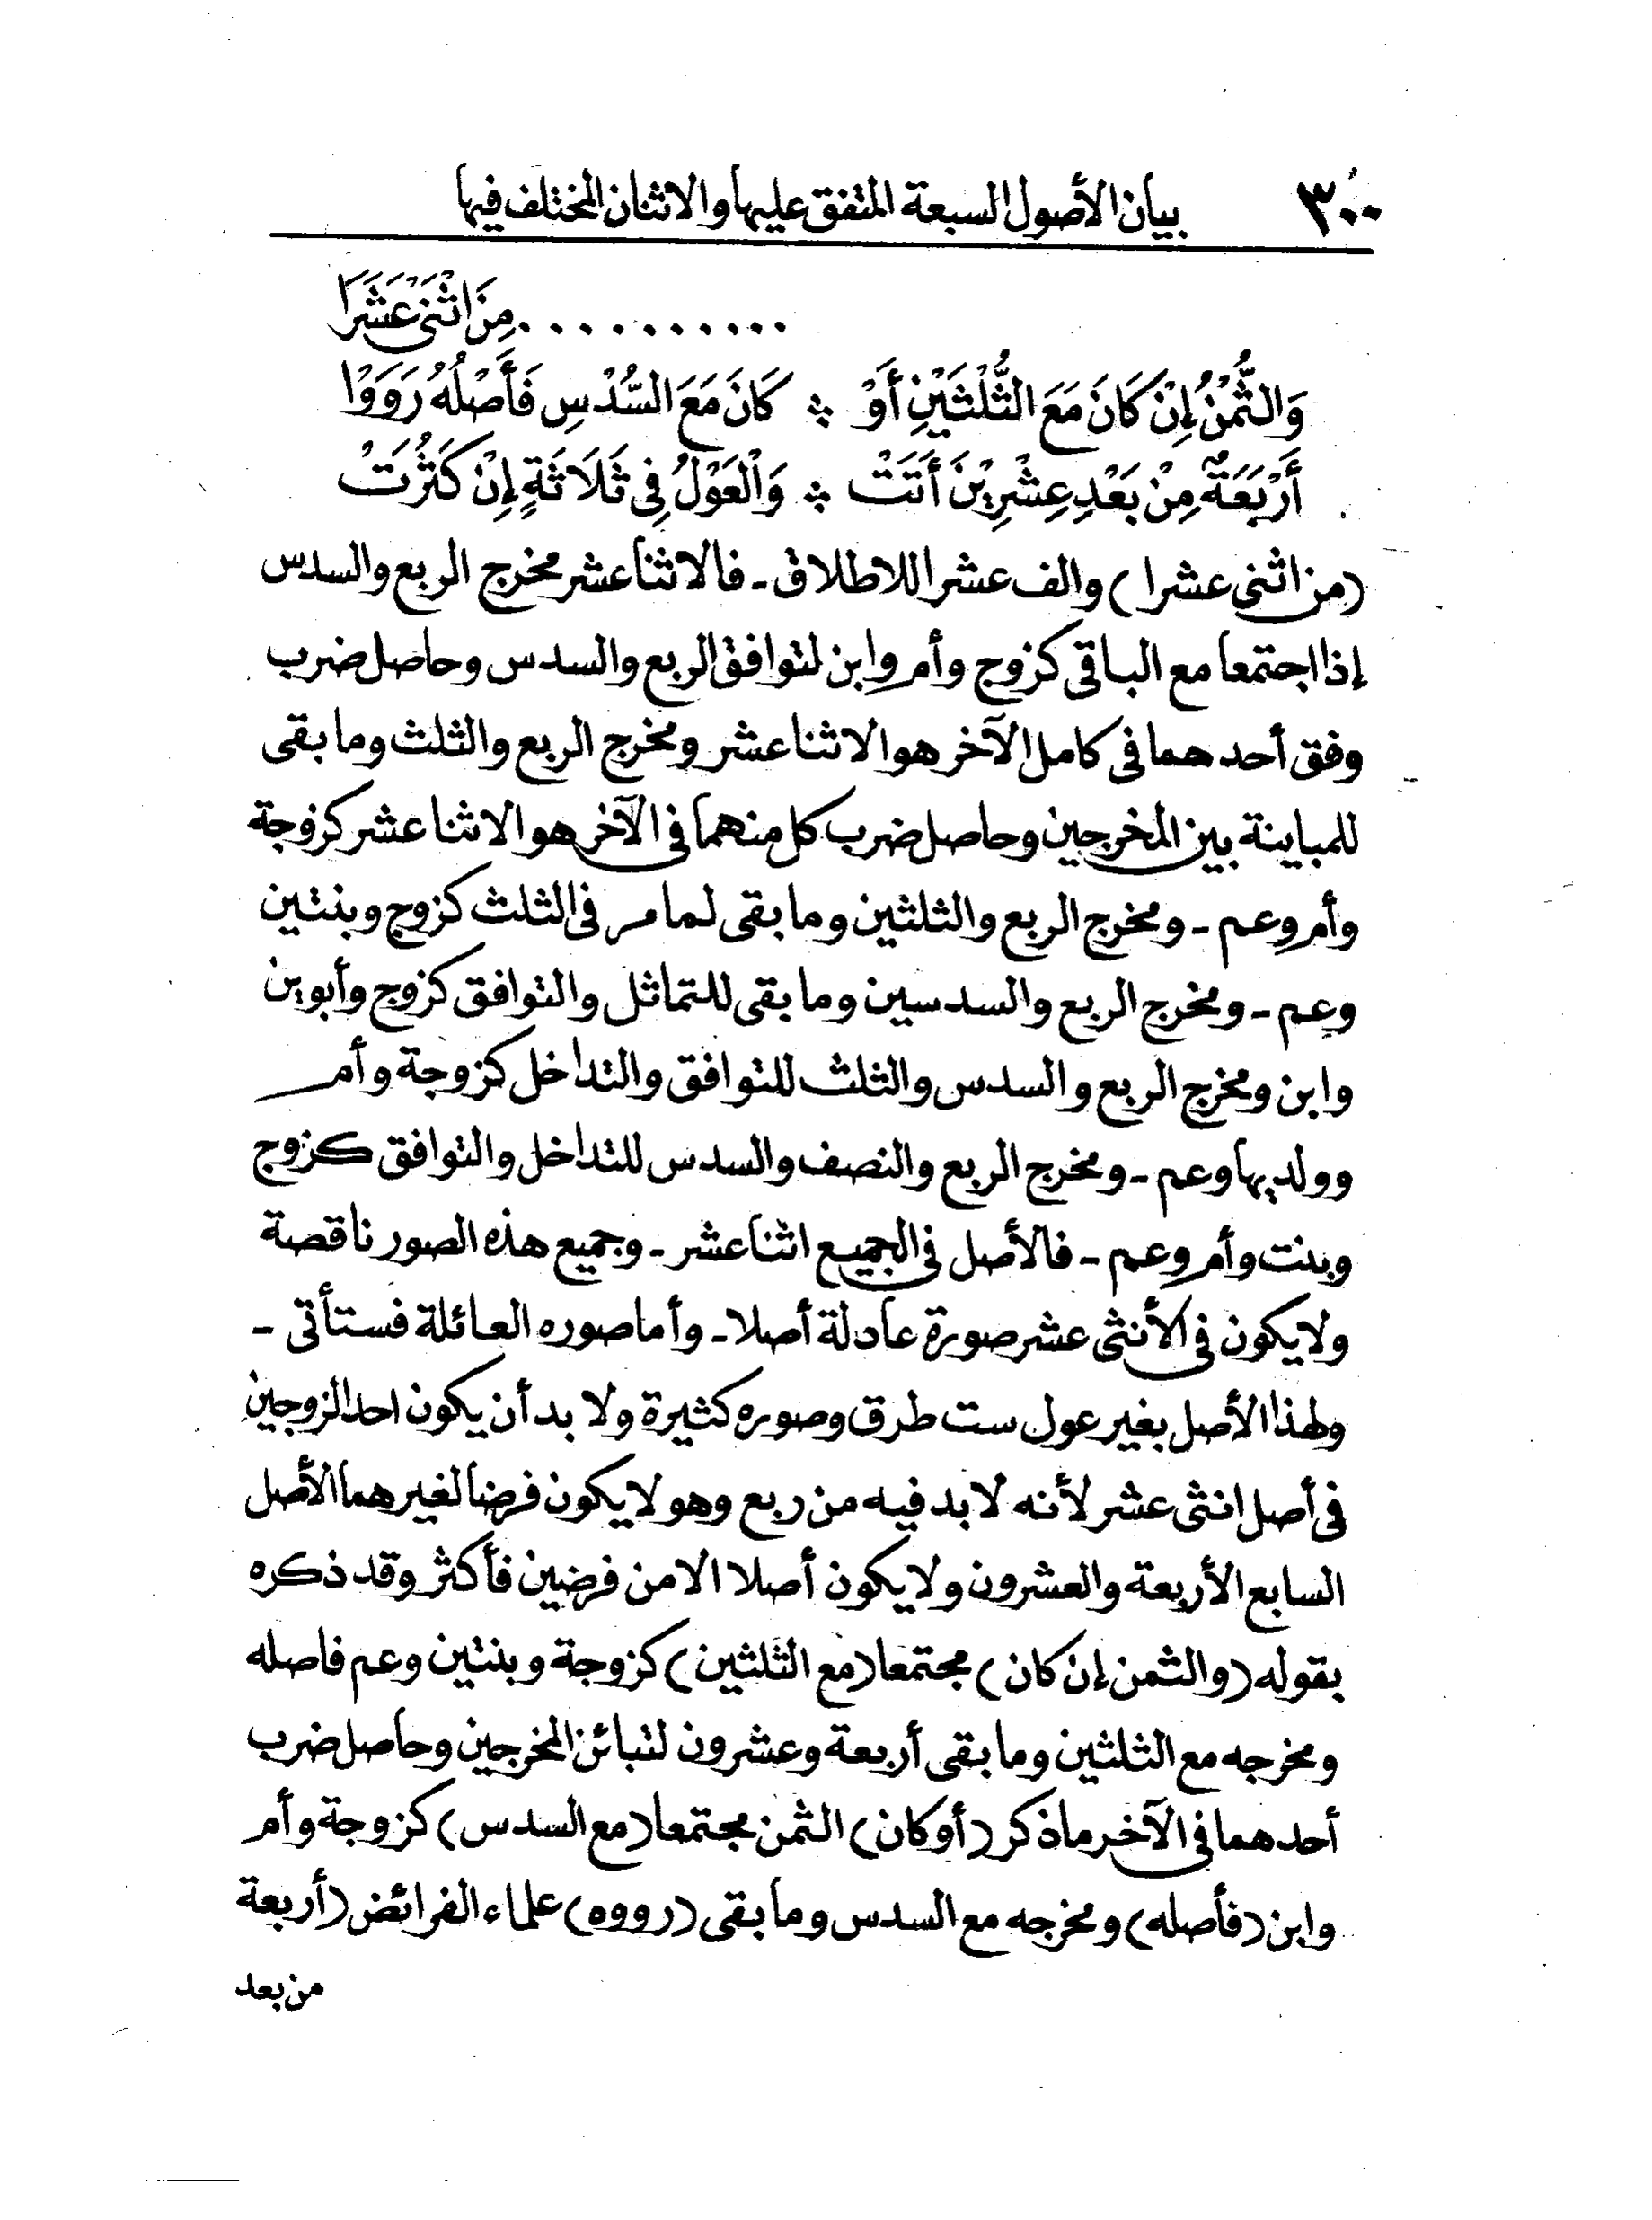 ٣٠٠ بيان الأصول السبعة المتفق عليها والاثنان المختلف فيها
........... مِنَ اثْنَىْ عَشَرَا
وَالثُّمْنُ إِنْ كَانَ مَعَ الثُّلْثَيْنِ أَوْ ؞ كَانَ مَعَ السُّدْسِ فَأَصْلُهُ رَوَوْا
أَرْبَعَةٌ مِنْ بَعْدِ عِشْرِيْنَ أَتَتْ ؞ وَالْعَوْلُ فِى ثَلَاثَةٍ إِنْ كَثُرَتْ
(من اثنى عشرا) والف عشرا للاطلاق - فالاثنا عشر مخرج الربع والسدس
إذا اجتمعا مع الباقى كزوج وأم وابن لتوافق الربع والسدس وحاصل ضرب
وفق أحدهما فى كامل الآخر هو الاثنا عشر ومخرج الربع والثلث وما بقى
للمباينة بين المخرجين وحاصل ضرب كل منهما فى الآخر هو الاثنا عشر كزوجة
وأم وعم - ومخرج الربع والثلثين وما بقى لما مر فى الثلث كزوج وبنتين
وعم - ومخرج الربع والسدسين وما بقى للتماثل والتوافق كزوج وأبوين
وابن ومخرج الربع والسدس والثلث للتوافق والتداخل كزوجة وأم
وولديها وعم - ومخرج الربع والنصف والسدس للتداخل والتوافق كزوج
وبنت وأم وعم - فالأصل فى الجميع اثنا عشر - وجميع هذه الصور ناقصة
ولا يكون فى الأنثى عشر صورة عادلة أصلا - وأما صوره العائلة فستأتى -
ولهذا الأصل بغير عول ست طرق وصوره كثيرة ولا بد أن يكون احد الزوجين
فى أصل انثى عشر لأنه لا بد فيه من ربع وهو لا يكون فرضا لغيرهما الأصل
السابع الأربعة والعشرون ولا يكون أصلا الا من فرضين فأكثر وقد ذكره
بقوله (والثمن إن كان) مجتمعا (مع الثلثين) كزوجة وبنتين وعم فاصله
ومخرجه مع الثلثين وما بقى أربعة وعشرون لتبائن المخرجين وحاصل ضرب
أحدهما فى الآخر ما ذكر (أو كان) الثمن مجتمعا (مع السدس) كزوجة وأم
وابن (فأصله) ومخرجه مع السدس وما بقى (رووه) علماء الفرائض (أربعة
من بعد